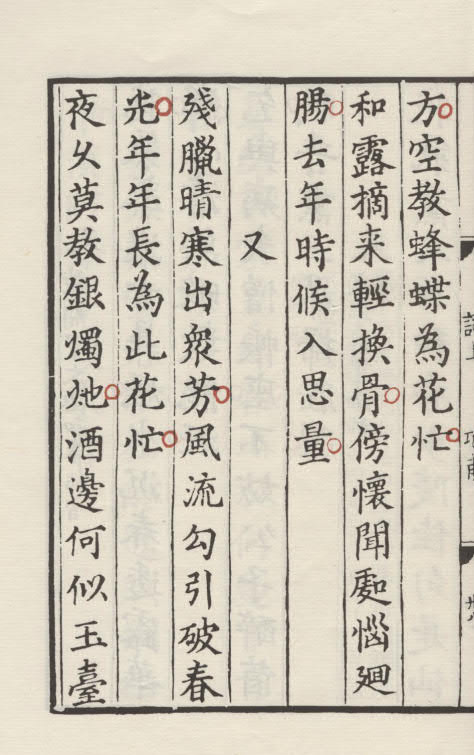 方空教蜂蝶為花忙
和露摘来輕換骨傍懷聞處惱廻
腸去年時候入思量
又
殘臘晴寒出衆芳風流勾引破春
光年年長為此花忙
夜久莫教銀燭灺酒邊何似玉臺